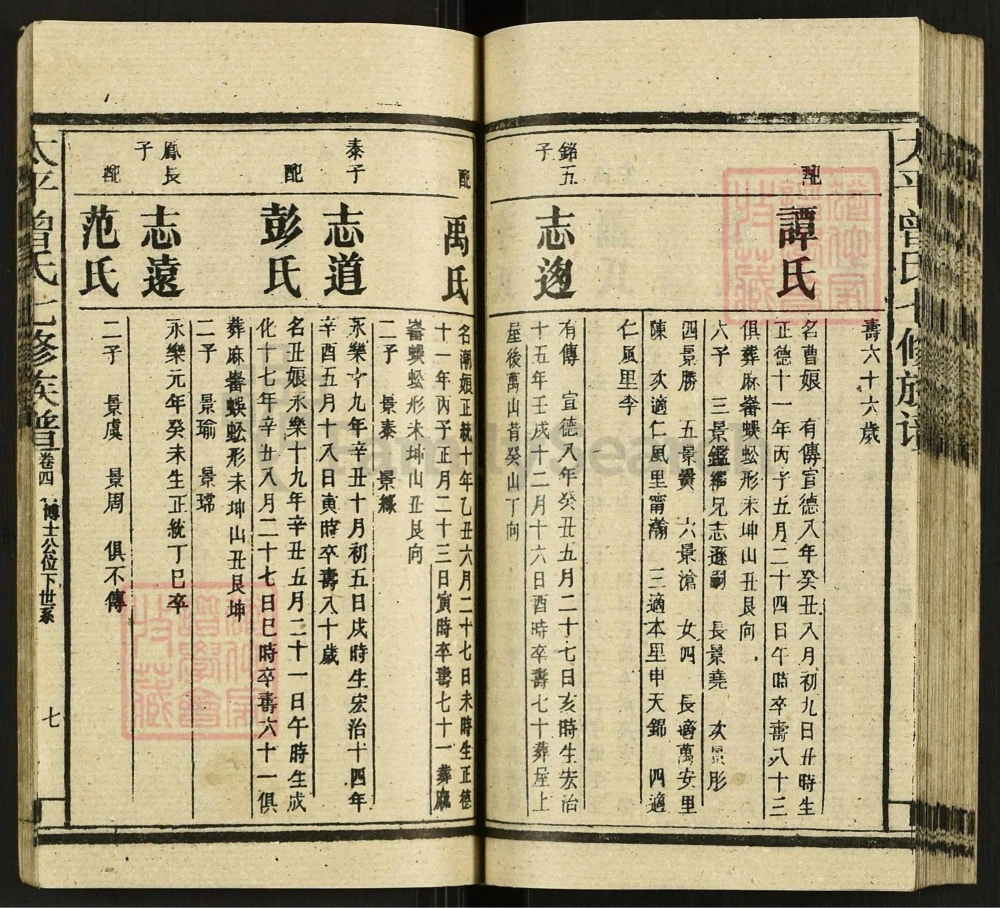 太平曾氏七修族譜
壽六十六歲
配
譚氏
名曹娘 有傳宣德八年癸丑八月初九日丑時生
正德十一年丙子五月二十四日午時卒壽八十三
俱葬麻崙蜈蚣形未坤山丑艮向
六子 三景鑑繼兄志遜嗣 長景堯 次景彤
四景勝 五景贊 六景滄 女四 長適萬安里
陳 次適仁風里甯瀚 三適本里申天錦 四適
仁風里李
銘五子
志迿
有傳 宣德八年癸丑五月二十七日亥時生宏治
十五年壬戌十二月十六日酉時卒壽七十葬屋上
屋後萬山昔癸山丁向
配
禹氏
名潮娘正統十年乙丑六月二十七日未時生正德
十一年丙子正月二十三日寅時卒壽七十一葬麻
崙蜈蚣形未坤山丑艮向
二子 景泰 景緣
泰子
志道
永樂十九年辛丑十月初五日戌時生宏治十四年
辛酉五月十八日寅時卒壽八十歲
配
彭氏
名丑娘永樂十九年辛丑五月二十一日午時生成
化十七年辛丑八月二十七日巳時卒壽六十一俱
葬麻崙蜈蚣形未坤山丑艮坤
二子 景瑜 景瑺
鳳長子
志遠
永樂元年癸未生正統丁巳卒
配
范氏
二子 景虞 景周 俱不傳
太平曾氏七修族譜 卷四 博士公位下世系 七